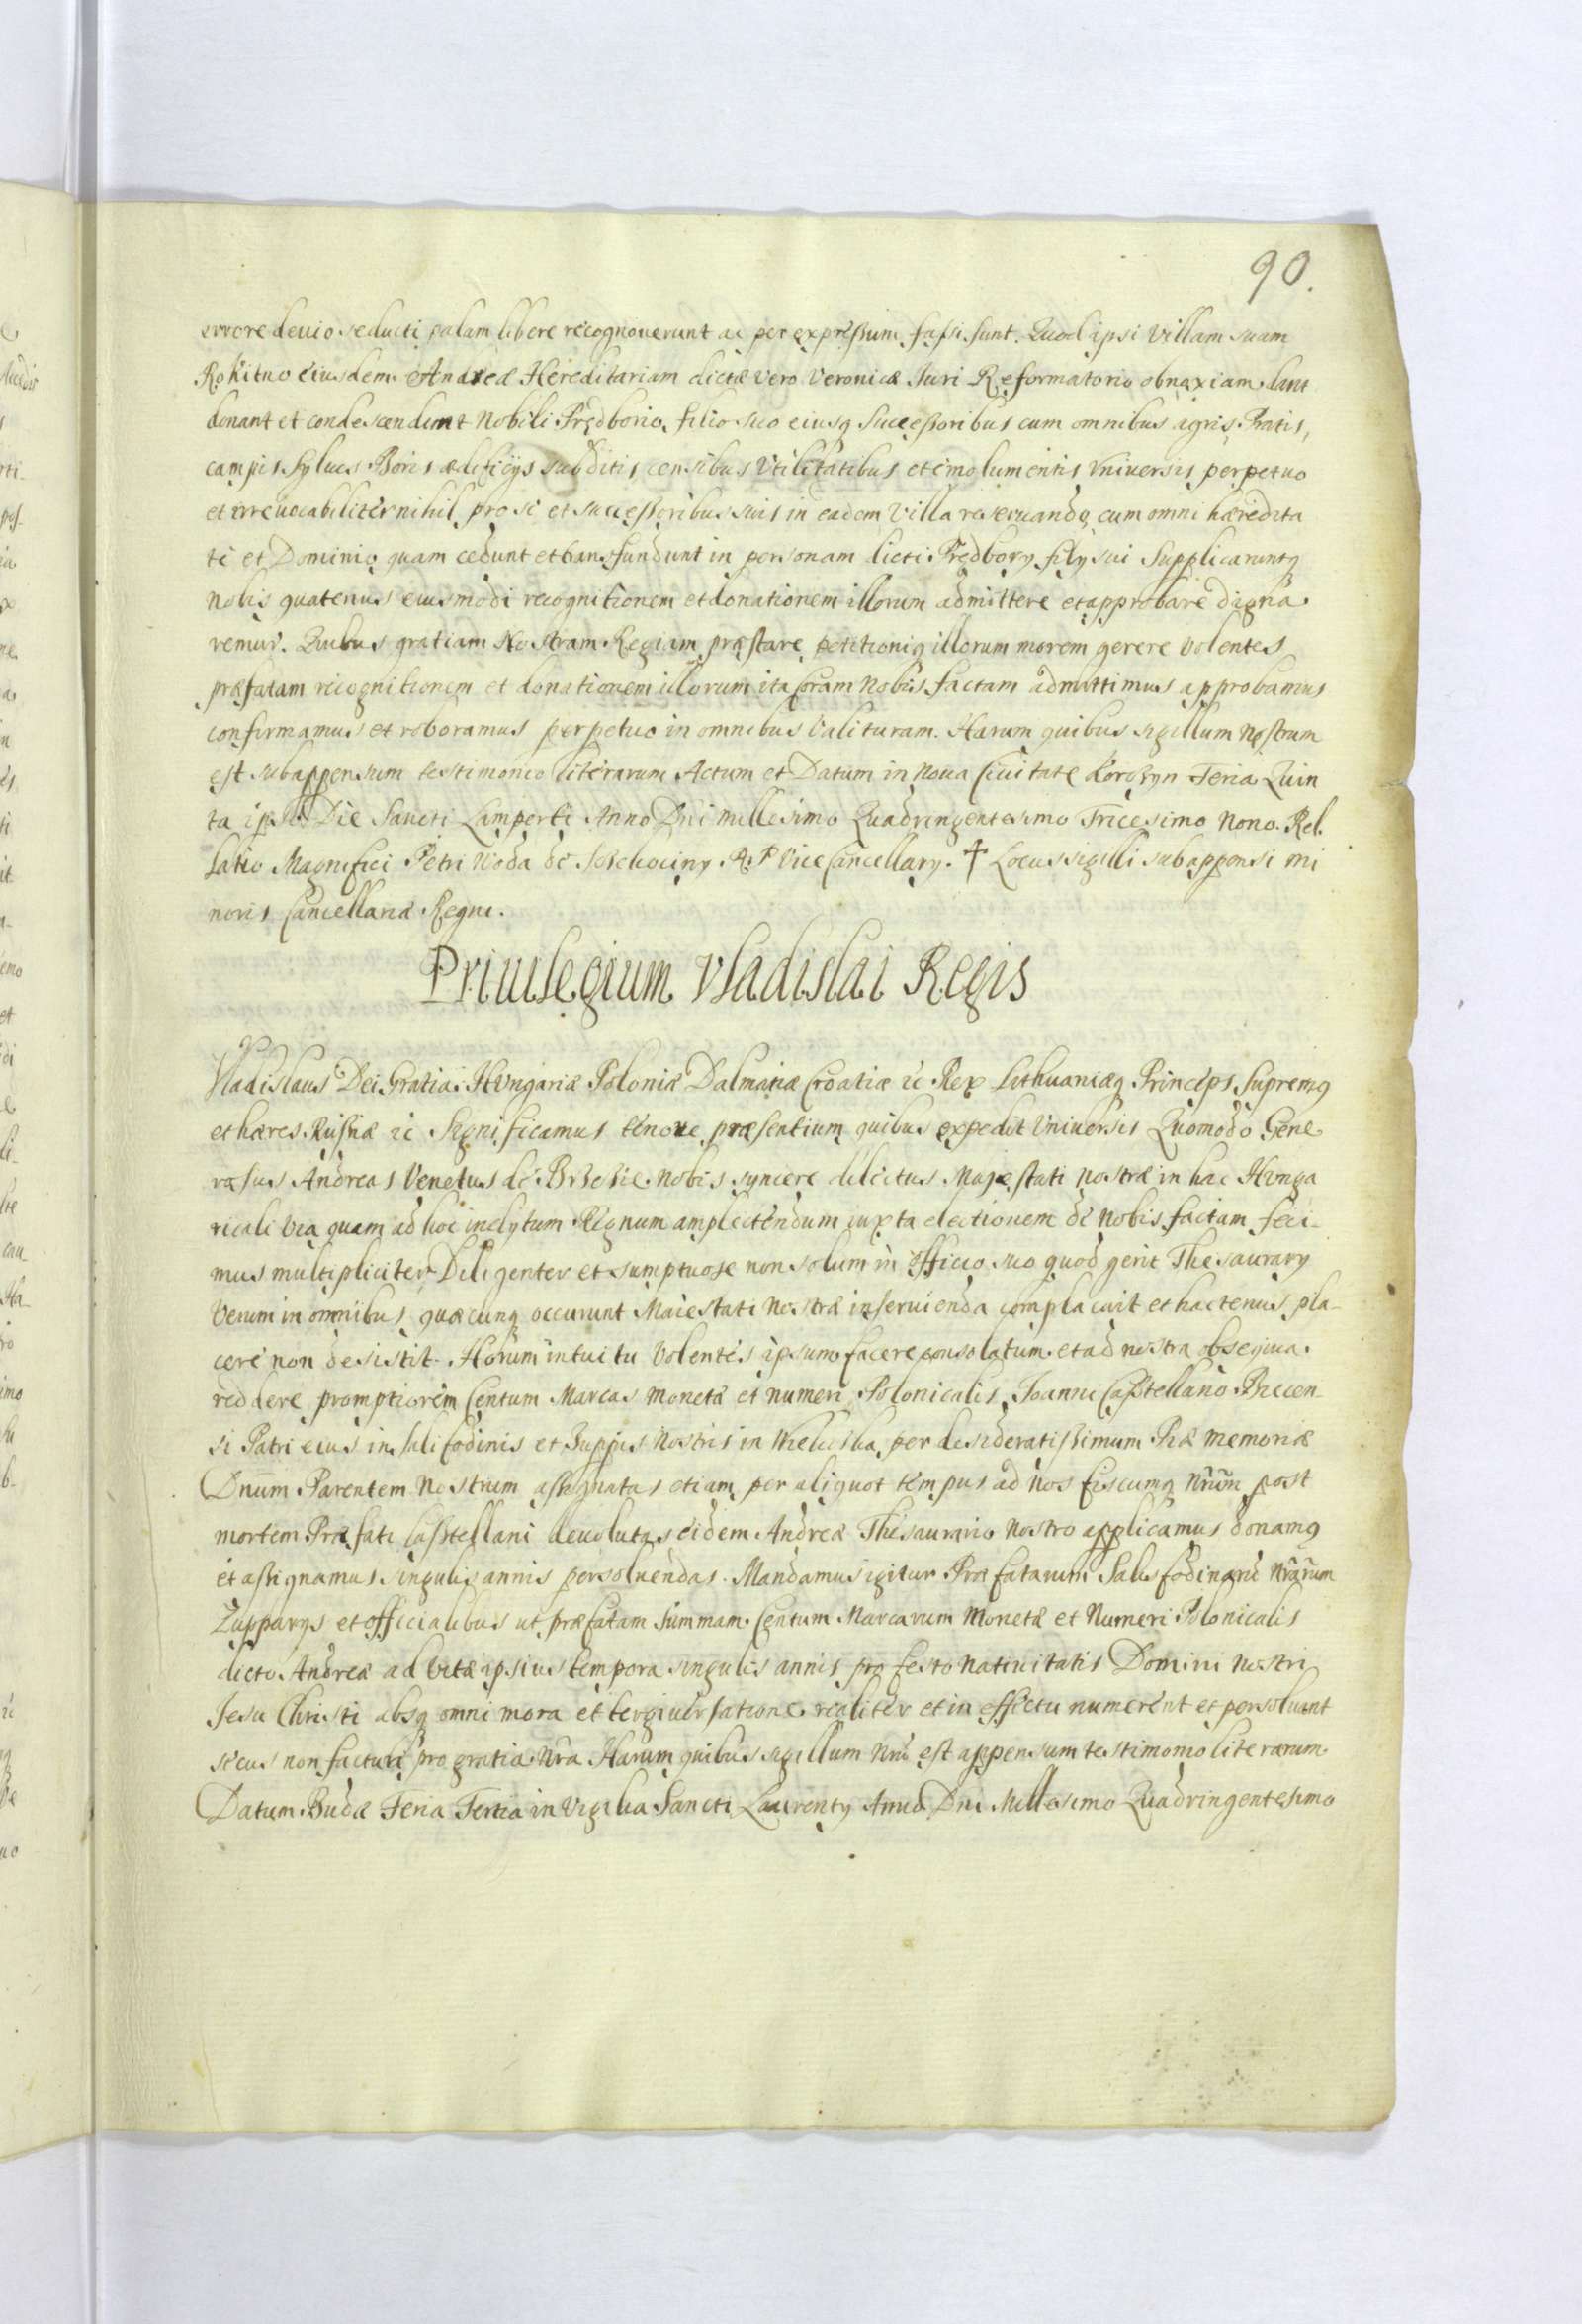 90.
errore deuio seducti palam libere recognouerunt ac per expressum fassi sunt. Quod ipsi Villam suam
Rokitno eiusdem Andreæ Hereditariam dictæ vero Veronicæ Iuri Reformatorio obnoxiam dant
donant et condescendunt Nobili Prędborio filio suo eiusq Successoribus cum omnibus agris Pratis,
campis Syluis Boris ædificijs subditis censibus Vtilitatibus et emolumentis Vniuersis perpetuo
et irreuocabiliter nihil pro se et successoribus suis in eadem Villa reseruando cum omni hæredita
te et Dominio quam cedunt et transfundunt in personam dicti Prędbory filij sui Supplicaruntq
nobis quatenus eiusmodi recognitionem et donationem illorum admittere et approbare digna
remur. Quibus gratiam Nostram Regiam præstare petitioniq illorum morem gerere Volentes
præfatam recognitionem et donationem illorum ita Coram Nobis factam admittimus approbamus
confirmamus et roboramus perpetuo in omnibus Valituram. Harum quibus sigillum Nostrum
est subappensum testimonio literarum Actum et Datum in Noua Ciuitate Korczyn Feria Quin
ta ipso Die Sancti Lamperti Anno Dni millesimo Quadringentesimo Tricesimo Nono. Rel.
latio Magnifici Petri Woda de R. P Vice Cancellary. ✝ Locus sigilli subappensi mi
noris Cancellariæ Regni.
Priuilegium Vladislai Regis
Vladislaus Dei Gratia Hungariæ Poloniæ Dalmatiæ Croatiæ &c Rex Lithuaniæq Princeps Supremq
et hæres Russiæ &c Significamus tenore præsentium quibus expedit Vniuersis Quomodo Gene
rosus Andreas Venetus de Nobis syncere dilectus Majestati Nostræ in hac Hunga
ricali Via quam ad hoc inclytum Regnum amplectendum iuxta electionem de Nobis factam feci-
mus multipliciter Diligenter et sumptuose non solum in officio suo quod gerit Thesaurary
Verum in omnibus quæcunq occurunt Maiestati Nostræ inseruienda complacuit et hactenus pla-
cere non desistit. Horum intuitu Volentes ipsum facere consolatum et ad nostra obsequia
reddere promptiorem Centum Marcas Monetæ et numeri Polonicalis Joanni Castellano Brecen-
si Patri eius in Salifodinis et Zuppis Nostris in Wieliczka per desideratissimum Piæ memoriæ
Dnum Parentem Nostrum assignatas etiam per aliquot tempus ad Nos fiscumq Nrum post
mortem Præfati Castellani deuolutas eidem Andreæ Thesaurario Nostro applicamus donamq
et assignamus singulis annis persoluendas. Mandamus igitur Præfatarum Salisfodinarū Nrarum
Zupparys et officialibus ut præfatam summam Centum Marcarum Monetæ et Numeri Polonicalis
dicto Andreæ ad Vitæ ipsius tempora singulis annis pro festo Natiuitatis Domini Nostri
Jesu Christi absq omni mora et tergiuersatione realiter et in effectu numerent et persoluant
secus non facturi pro gratia Nra Harum quibus sigillum Nrū est appensum testimonio literarum
Datum Budæ Feria Tertia in Vigilia Sancti Laurenty Anno Dni Millesimo Quadringentesimo